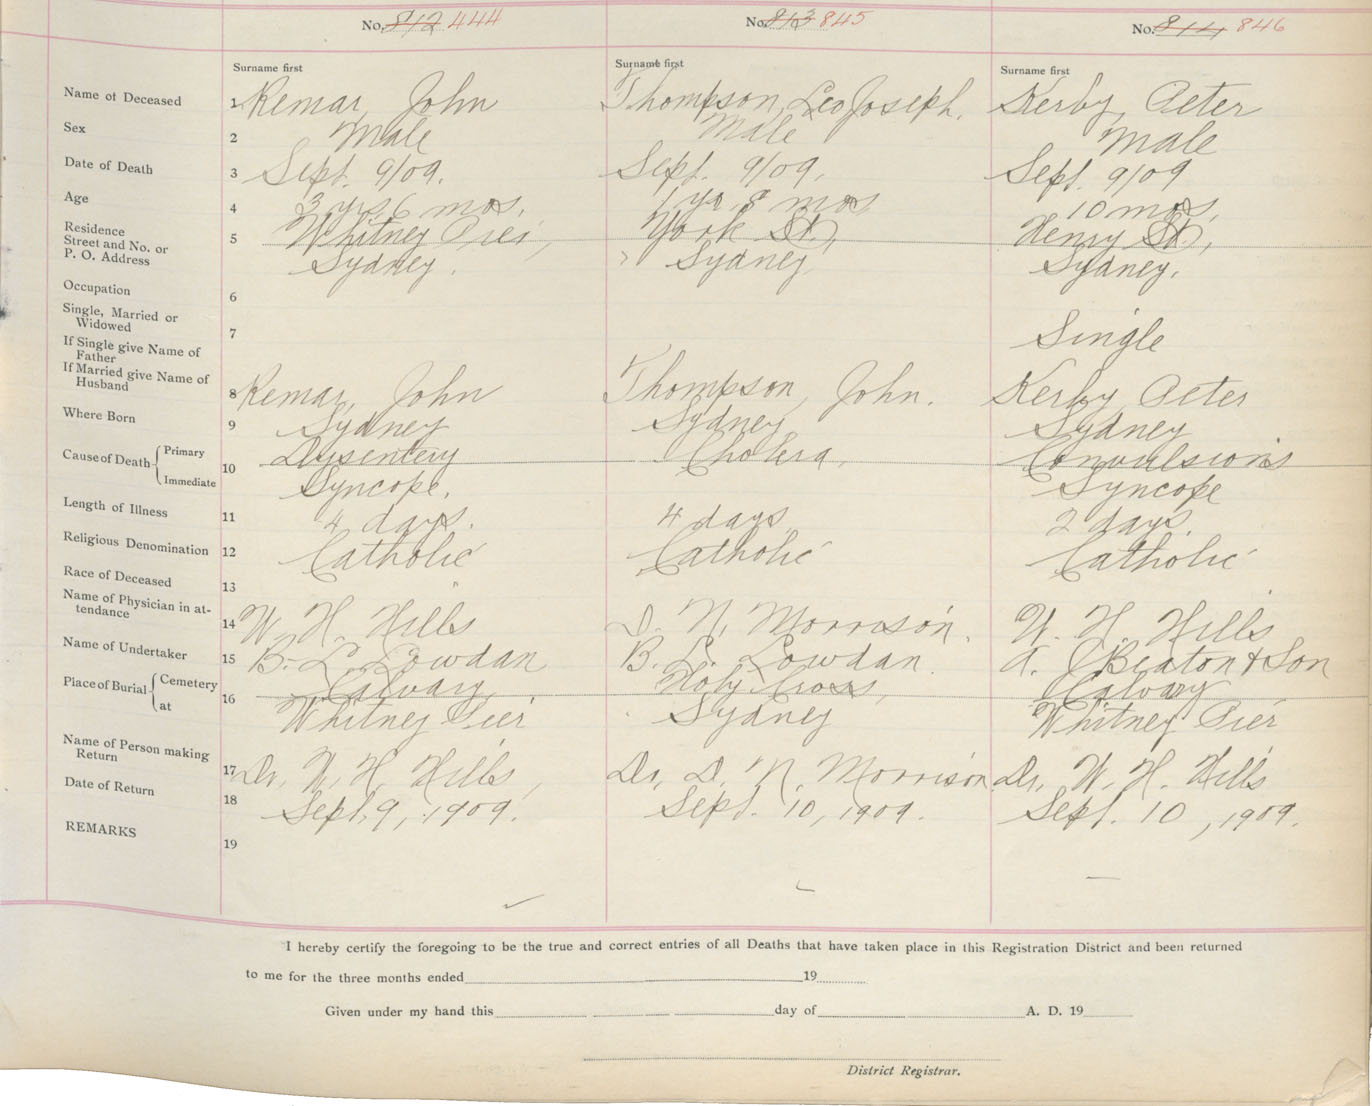 No. 812 444
No. 813 845
No. 814 846
Surname first
Surname first
Surname first
Name of Deceased 1 Remar, John Thompson, Leo Joseph. Kerby, Peter
Sex 2 Male Male Male
Date of Death 3 Sept. 9/09. Sept. 9/09. Sept. 9/09
Age 4 3 yrs 6 mos. 1 yr 8 mos 10 mos.
Residence
Street and No. or 5 Whitney Pier, York St., Henry St.,
P. O. Address Sydney. Sydney Sydney.
Occupation 6
Single, Married or
Widowed 7 Single
If Single give Name of
Father
If Married give Name of
Husband 8 Remar, John Thompson, John. Kerby, Peter
Where Born 9 Sydney Sydney Sydney
Cause of Death Primary 10 Dysentery Cholera, Convulsions
Immediate Syncope. Syncope
Length of Illness 11 4 days. 4 days. 2 days.
Religious Denomination 12 Catholic Catholic Catholic
Race of Deceased 13
Name of Physician in at-
tendance 14 W. H. Hills D. N. Morrison. W. H. Hills
Name of Undertaker 15 B. L. Lowdan B. L. Lowdan A. J Beaton & Son
Place of Burial Cemetery 16 Calvary, Holy Cross, Calvary
at Whitney Pier Sydney Whitney Pier
Name of Person making
Return 17 Dr. W. H. Hills, Dr. D. N. Morrison. Dr. W. H. Hills
Date of Return 18 Sept. 9, 1909. Sept. 10, 1909. Sept. 10, 1909.
REMARKS 19
I hereby certify the foregoing to be the true and correct entries of all Deaths that have taken place in this Registration District and been returned
to me for the three months ended 19
Given under my hand this day of A. D. 19
District Registrar.